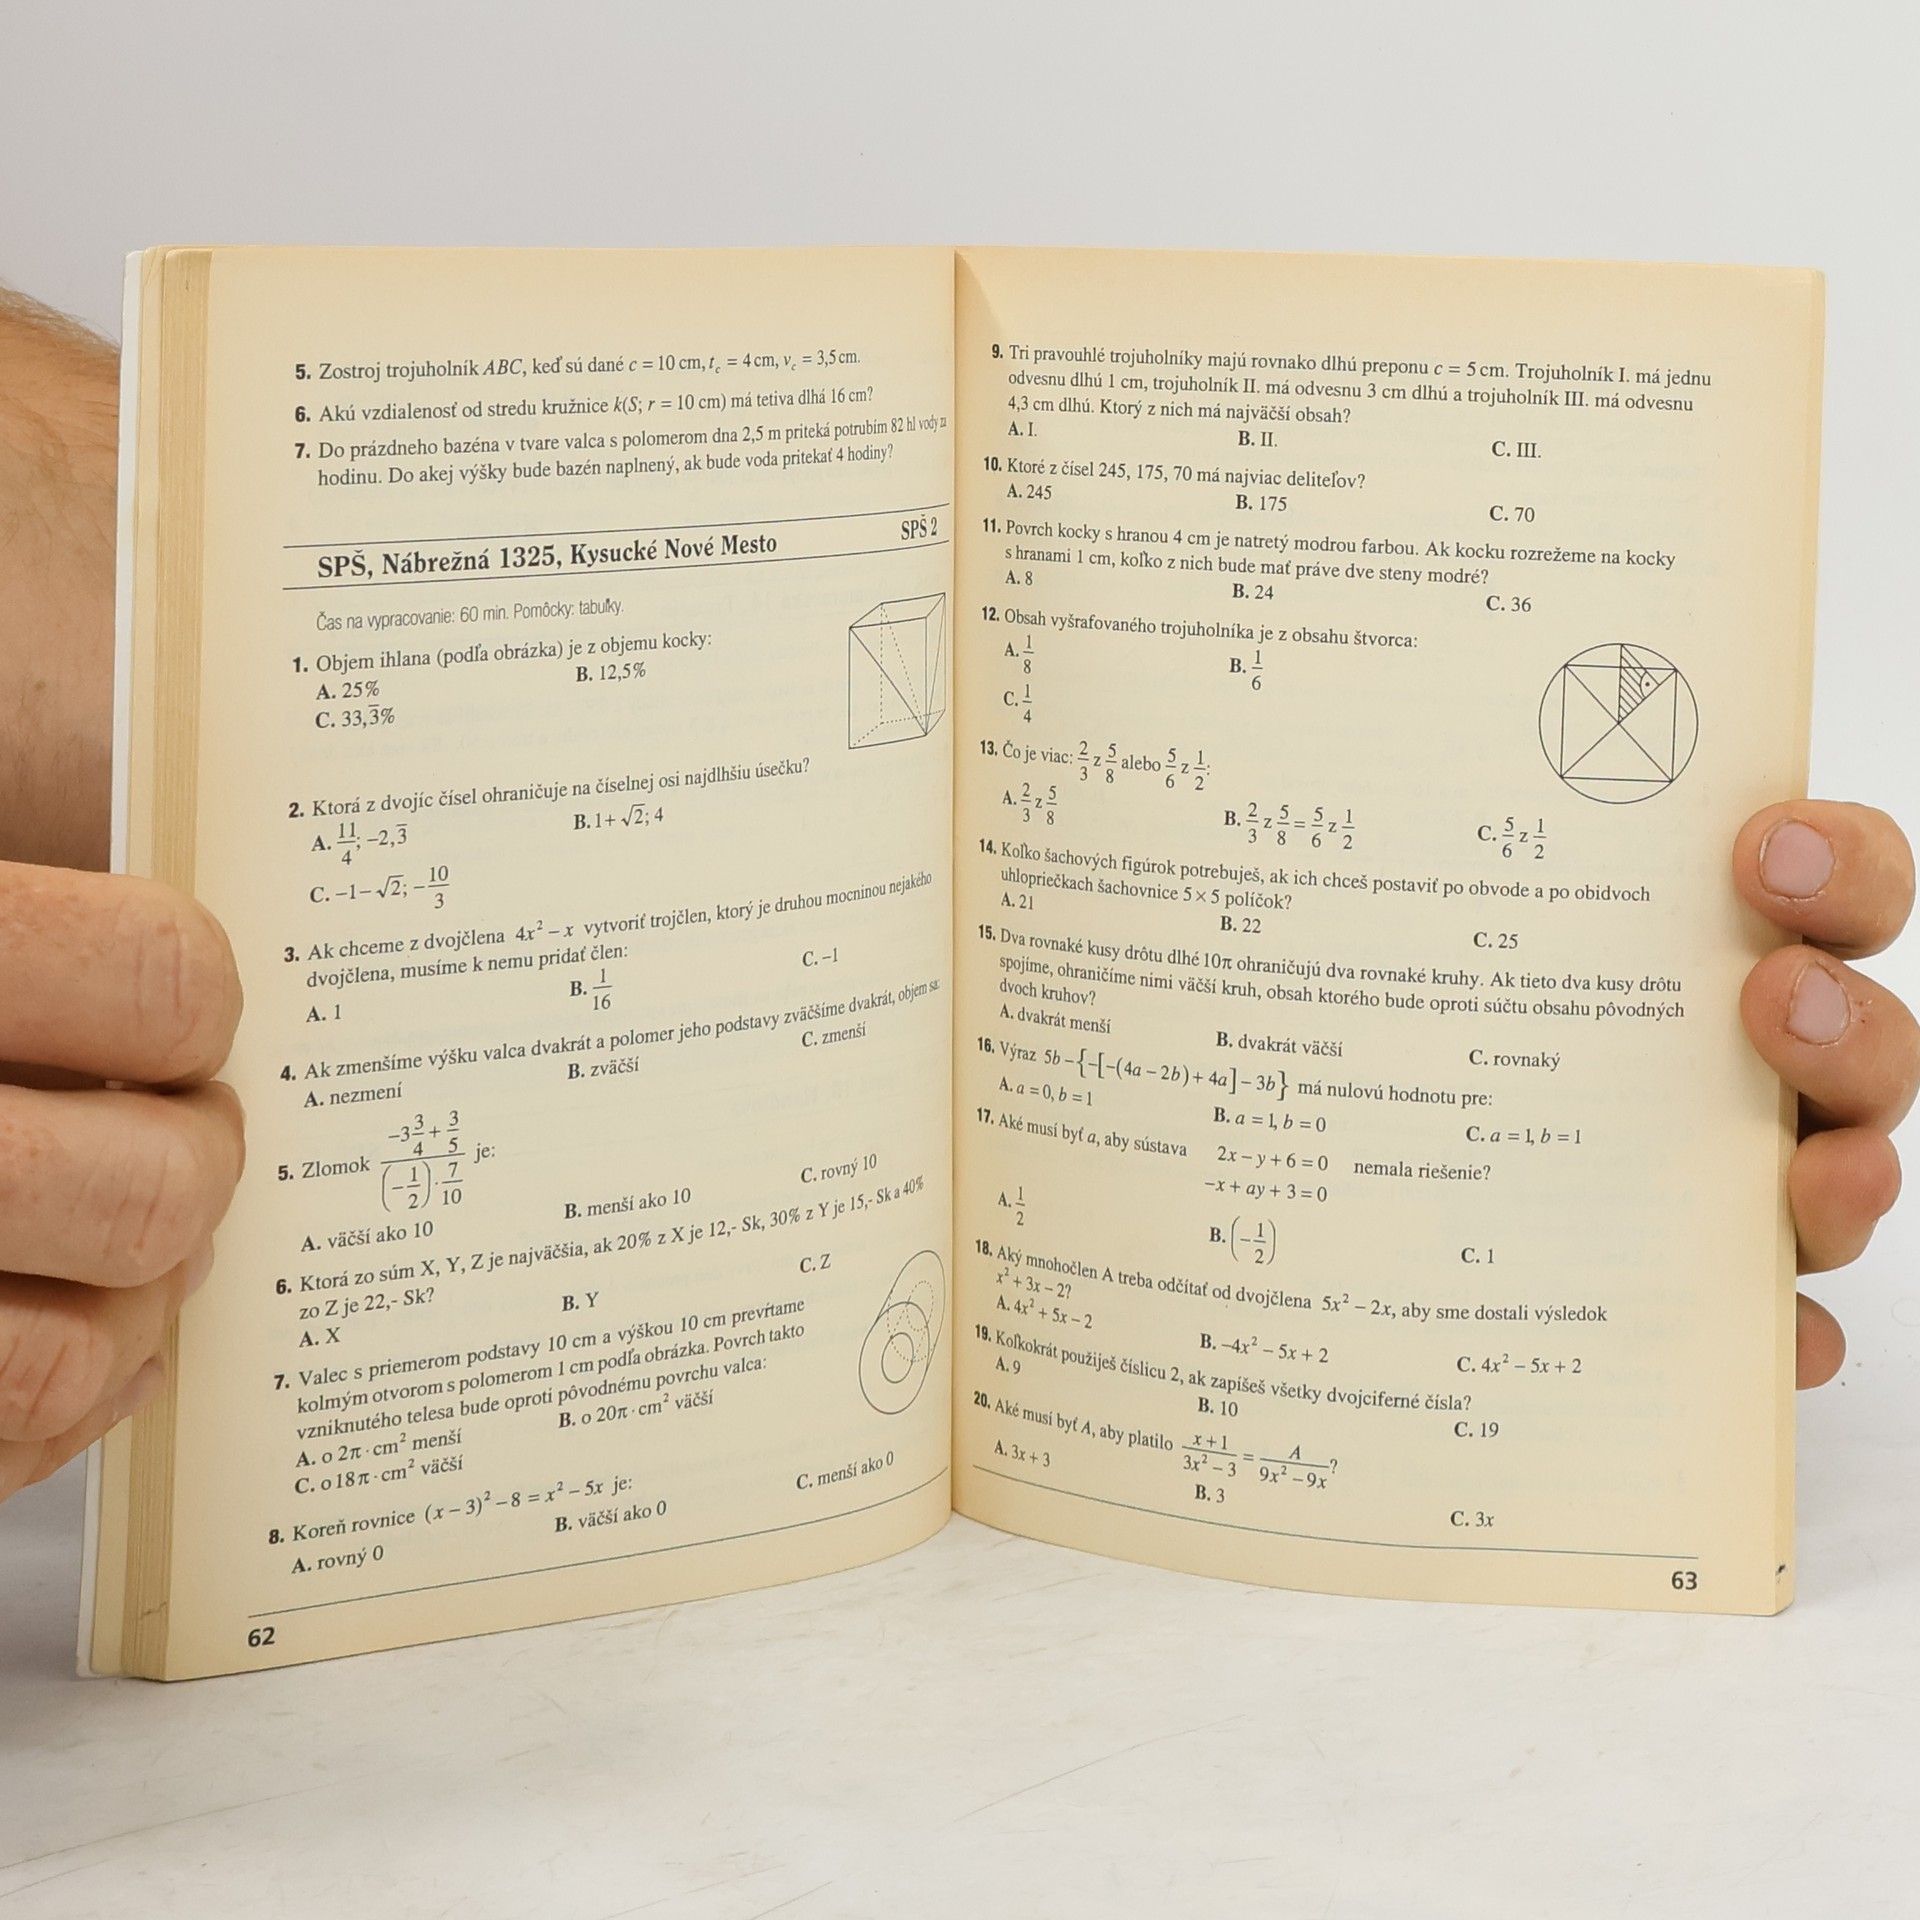 5. Zostroj trojuholník ABC, keď sú dané c = 10 cm, t_c = 4 cm, v_c = 3,5 cm.
6. Akú vzdialenosť od stredu kružnice k(S; r = 10 cm) má tetiva dlhá 16 cm?
7. Do prázdneho bazéna v tvare valca s polomerom dna 2,5 m priteká potrubím 82 hl vody za
hodinu. Do akej výšky bude bazén naplnený, ak bude voda pritekať 4 hodiny?
SPŠ, Nábrežná 1325, Kysucké Nové Mesto SPŠ 2
Čas na vypracovanie: 60 min. Pomôcky: tabuľky.
1. Objem ihlana (podľa obrázka) je z objemu kocky:
A. 25% B. 12,5%
C. 33,3̅%
2. Ktorá z dvojíc čísel ohraničuje na číselnej osi najdlhšiu úsečku?
A. 11/4; −2,3̅ B. 1+ √2; 4
C. −1− √2; −10/3
3. Ak chceme z dvojčlena 4x² − x vytvoriť trojčlen, ktorý je druhou mocninou nejakého
dvojčlena, musíme k nemu pridať člen:
A. 1 B. 1/16 C. −1
4. Ak zmenšíme výšku valca dvakrát a polomer jeho podstavy zväčšíme dvakrát, objem sa:
A. nezmení B. zväčší C. zmenší
5. Zlomok (−3 3/4 + 3/5) / ((−1/2) · 7/10) je:
A. väčší ako 10 B. menší ako 10 C. rovný 10
6. Ktorá zo súm X, Y, Z je najväčšia, ak 20% z X je 12,- Sk, 30% z Y je 15,- Sk a 40%
zo Z je 22,- Sk?
A. X B. Y C. Z
7. Valec s priemerom podstavy 10 cm a výškou 10 cm prevŕtame
kolmým otvorom s polomerom 1 cm podľa obrázka. Povrch takto
vzniknutého telesa bude oproti pôvodnému povrchu valca:
A. o 2π · cm² menší B. o 20π · cm² väčší
C. o 18π · cm² väčší
8. Koreň rovnice (x − 3)² − 8 = x² − 5x je:
A. rovný 0 B. väčší ako 0 C. menší ako 0
62
9. Tri pravouhlé trojuholníky majú rovnako dlhú preponu c = 5 cm. Trojuholník I. má jednu
odvesnu dlhú 1 cm, trojuholník II. má odvesnu 3 cm dlhú a trojuholník III. má odvesnu
4,3 cm dlhú. Ktorý z nich má najväčší obsah?
A. I. B. II. C. III.
10. Ktoré z čísel 245, 175, 70 má najviac deliteľov?
A. 245 B. 175 C. 70
11. Povrch kocky s hranou 4 cm je natretý modrou farbou. Ak kocku rozrežeme na kocky
s hranami 1 cm, koľko z nich bude mať práve dve steny modré?
A. 8 B. 24 C. 36
12. Obsah vyšrafovaného trojuholníka je z obsahu štvorca:
A. 1/8 B. 1/6
C. 1/4
13. Čo je viac: 2/3 z 5/8 alebo 5/6 z 1/2:
A. 2/3 z 5/8 B. 2/3 z 5/8 = 5/6 z 1/2 C. 5/6 z 1/2
14. Koľko šachových figúrok potrebuješ, ak ich chceš postaviť po obvode a po obidvoch
uhlopriečkach šachovnice 5 × 5 políčok?
A. 21 B. 22 C. 25
15. Dva rovnaké kusy drôtu dlhé 10π ohraničujú dva rovnaké kruhy. Ak tieto dva kusy drôtu
spojíme, ohraničíme nimi väčší kruh, obsah ktorého bude oproti súčtu obsahu pôvodných
dvoch kruhov?
A. dvakrát menší B. dvakrát väčší C. rovnaký
16. Výraz 5b − {−[−(4a − 2b) + 4a] − 3b} má nulovú hodnotu pre:
A. a = 0, b = 1 B. a = 1, b = 0 C. a = 1, b = 1
17. Aké musí byť a, aby sústava 2x − y + 6 = 0 nemala riešenie?
−x + ay + 3 = 0
A. 1/2 B. (−1/2) C. 1
18. Aký mnohočlen A treba odčítať od dvojčlena 5x² − 2x, aby sme dostali výsledok
x² + 3x − 2?
A. 4x² + 5x − 2 B. −4x² − 5x + 2 C. 4x² − 5x + 2
19. Koľkokrát použiješ číslicu 2, ak zapíšeš všetky dvojciferné čísla?
A. 9 B. 10 C. 19
20. Aké musí byť A, aby platilo (x + 1)/(3x² − 3) = A/(9x² − 9x)?
A. 3x + 3 B. 3 C. 3x
63